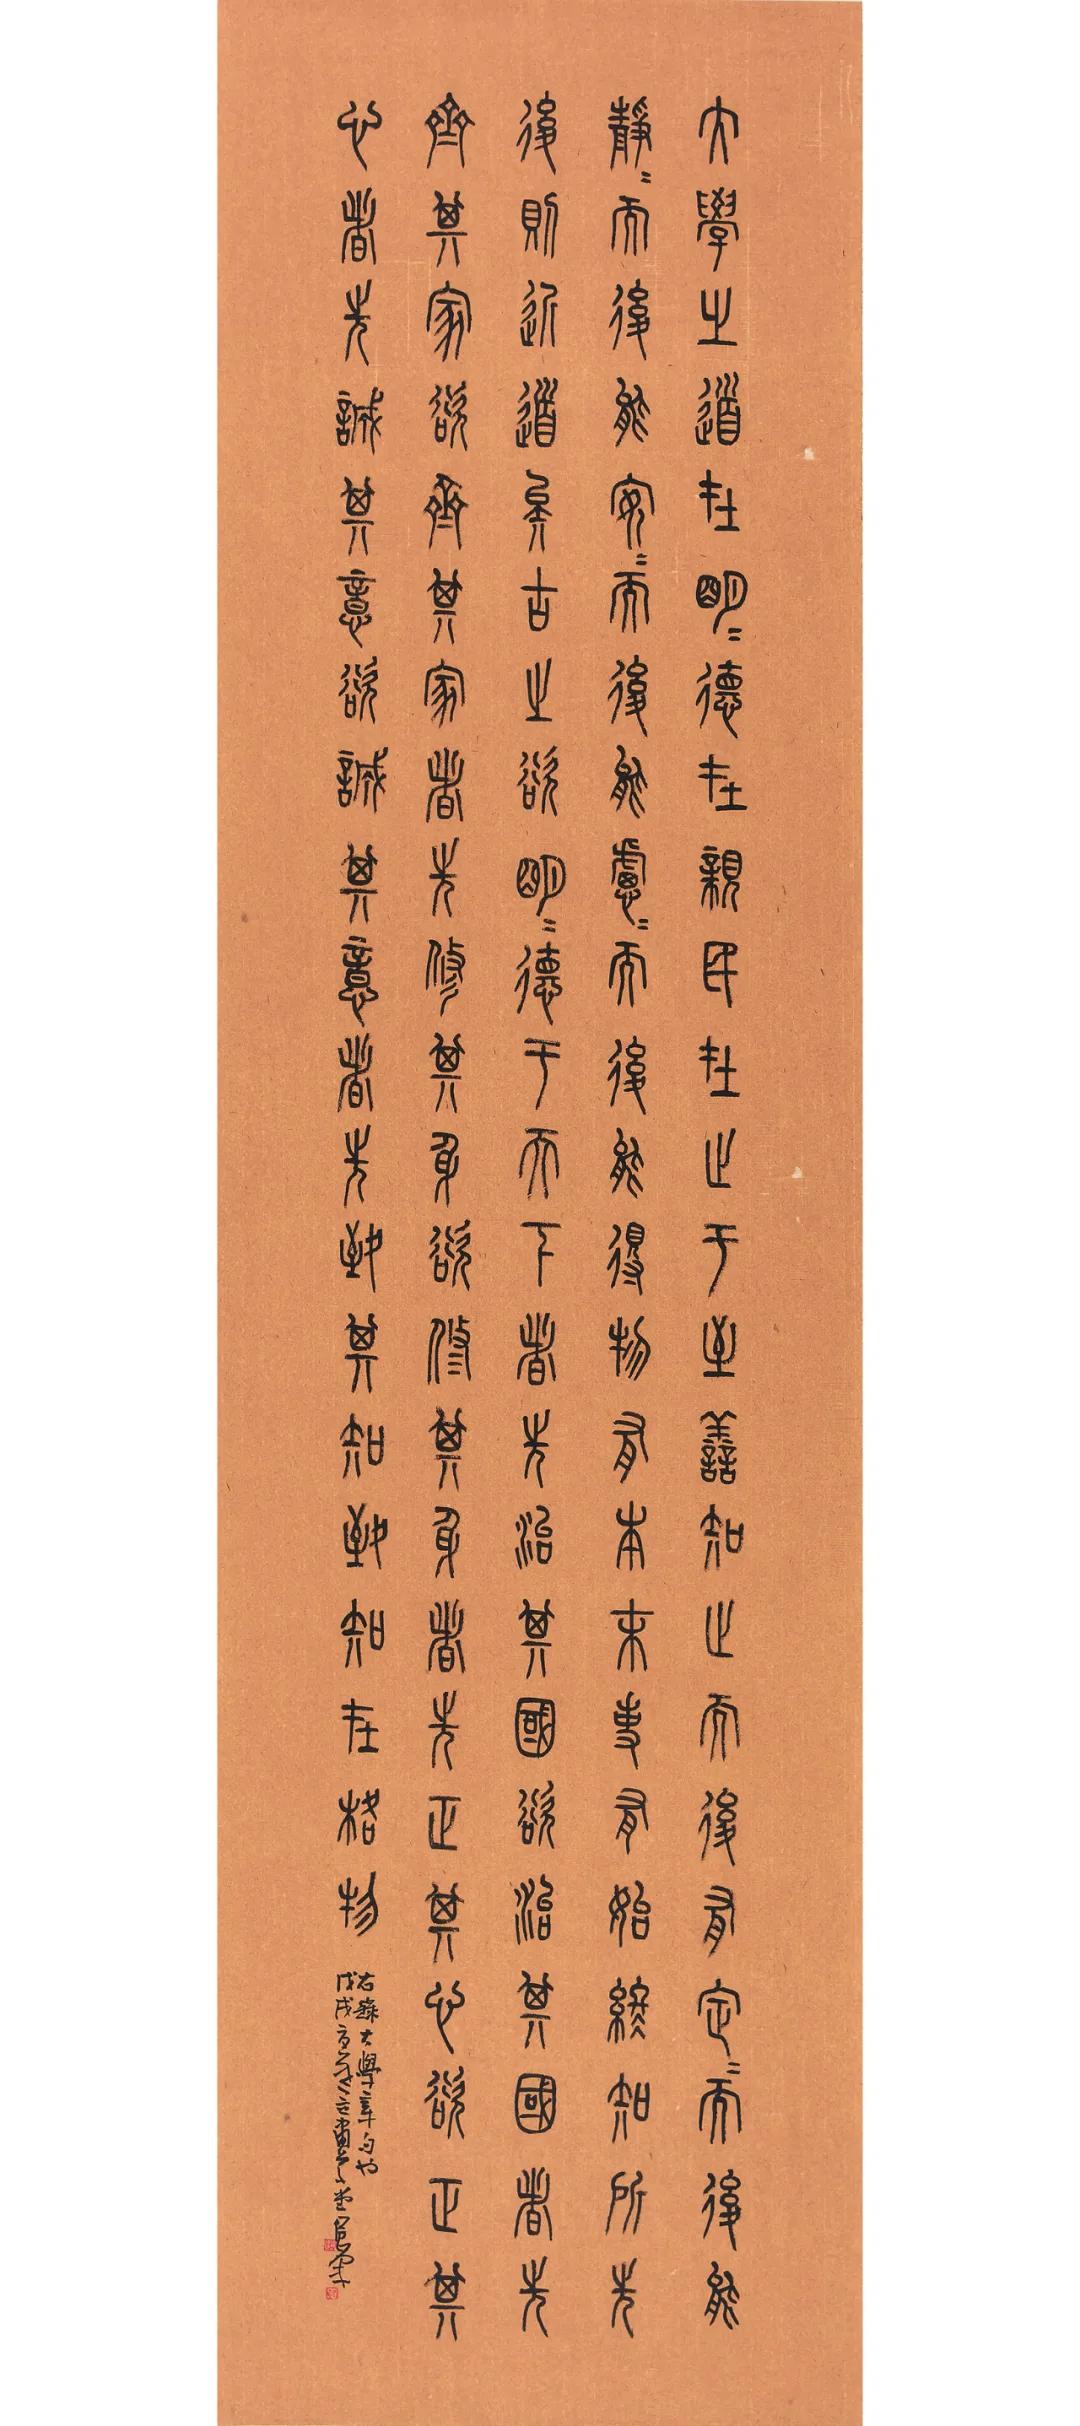 大學之道在明=德在親民在止于至善知止而後有定=而後能
靜=而後能安=而後能慮=而後能得物有本末事有始終知所先
後則近道矣古之欲明=德于天下者先治其國欲治其國者先
齊其家欲齊其家者先修其身欲修其身者先正其心欲正其
心者先誠其意欲誠其意者先致其知致知在格物
右錄大學章句也
戊戌